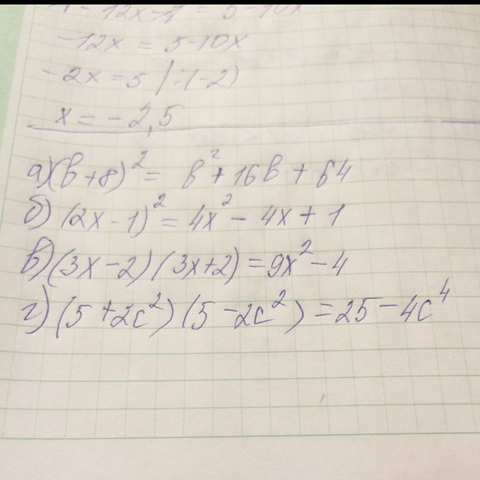 -12x = 5-10x
-2x = 5 | :(-2)
x = -2,5
а) (b+8)² = b² + 16b + 64
б) (2x-1)² = 4x² - 4x + 1
в) (3x-2)(3x+2) = 9x² - 4
г) (5+2c²)(5-2c²) = 25 - 4c⁴